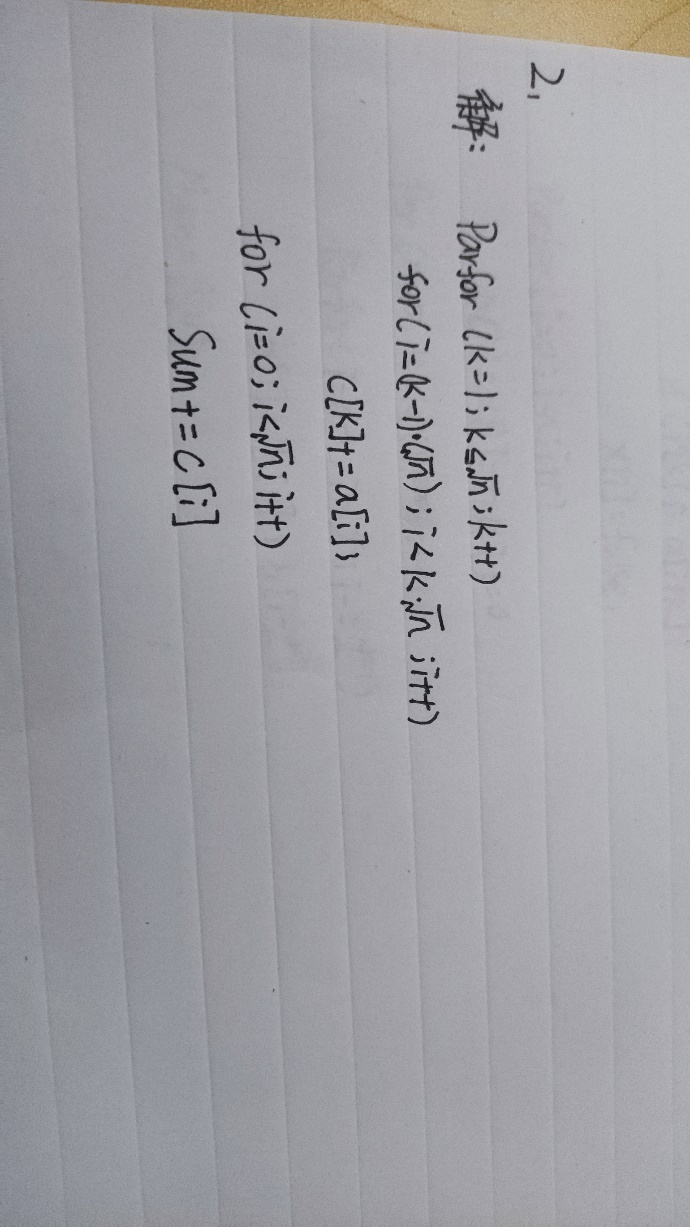 2.
解: Parfor (k=1; k≤√n; k++)
for(i=(k-1)·(√n); i<k·√n; i++)
C[k]+=a[i];
for (i=0; i<√n; i++)
Sum+=C[i]